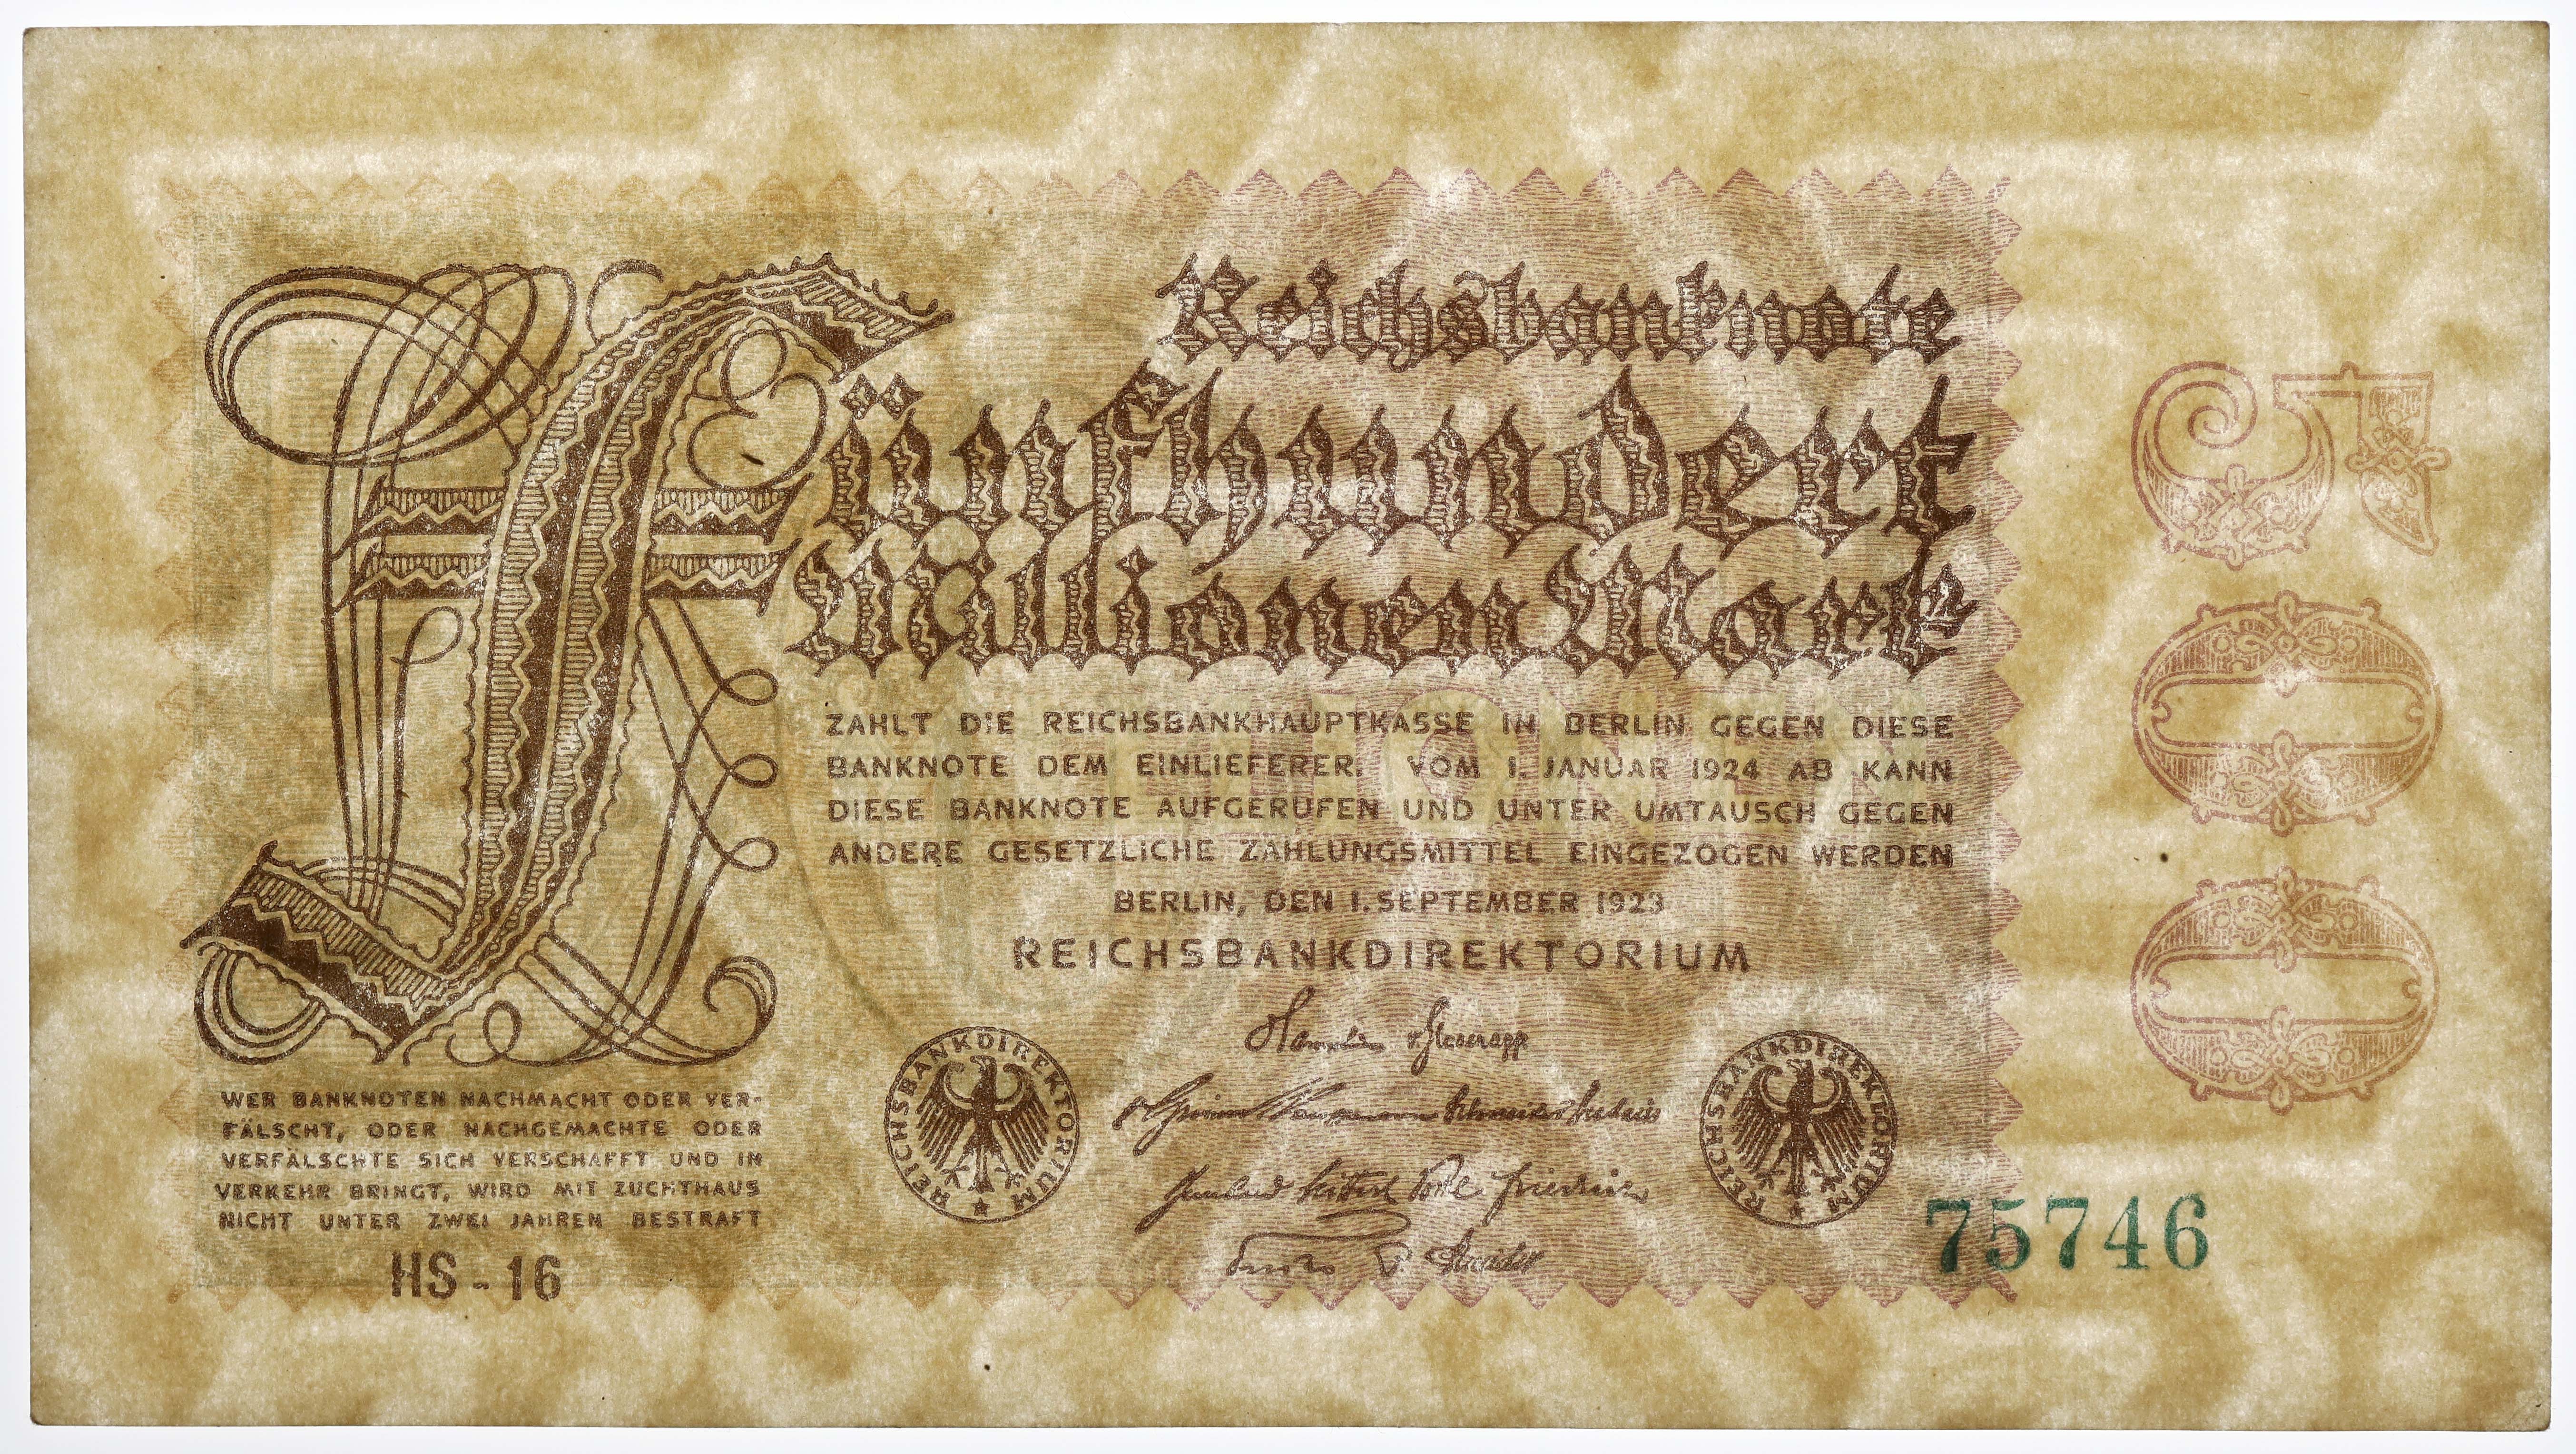 Reichsbanknote
Fünfhundert
Millionen Mark
500
ZAHLT DIE REICHSBANKHAUPTKASSE IN BERLIN GEGEN DIESE
BANKNOTE DEM EINLIEFERER. VOM 1. JANUAR 1924 AB KANN
DIESE BANKNOTE AUFGERUFEN UND UNTER UMTAUSCH GEGEN
ANDERE GESETZLICHE ZAHLUNGSMITTEL EINGEZOGEN WERDEN
BERLIN, DEN 1. SEPTEMBER 1923
REICHSBANKDIREKTORIUM
REICHSBANKDIREKTORIUM
REICHSBANKDIREKTORIUM
WER BANKNOTEN NACHMACHT ODER VER-
FÄLSCHT, ODER NACHGEMACHTE ODER
VERFÄLSCHTE SICH VERSCHAFFT UND IN
VERKEHR BRINGT, WIRD MIT ZUCHTHAUS
NICHT UNTER ZWEI JAHREN BESTRAFT
HS - 16
75746